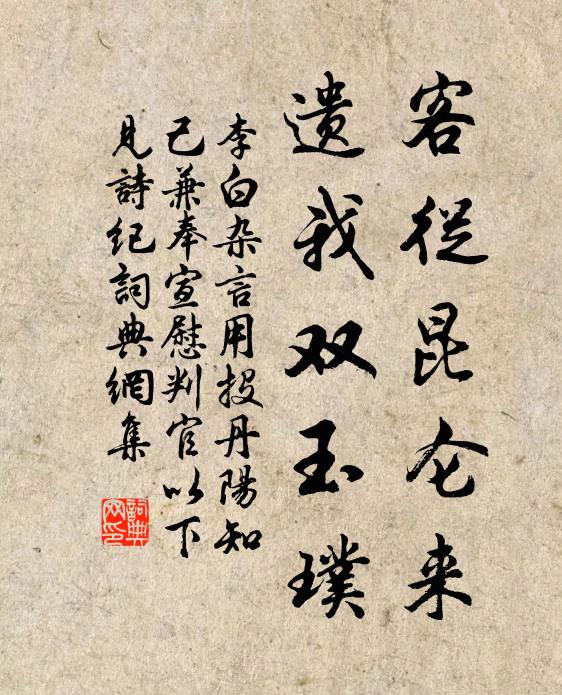 客從昆仑来
遗我双玉璞
李白杂言用投丹陽知
己兼奉宣慰判官以下
見詩纪詞典網集
詞典
网印